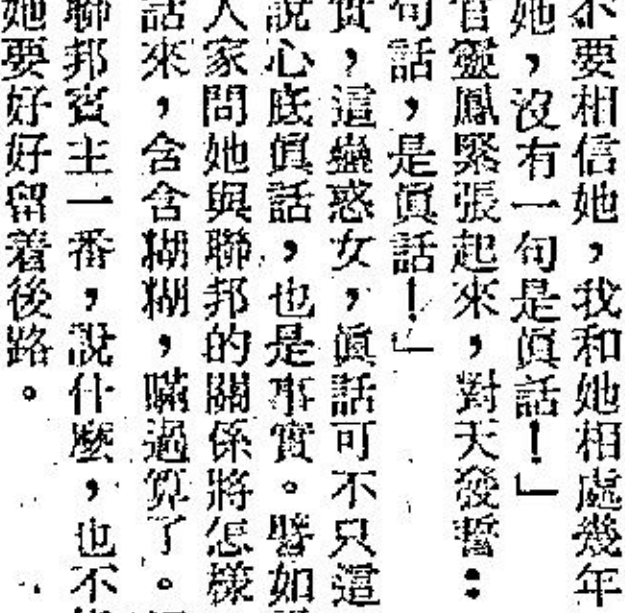 不要相信她，我和她相處幾年
她，沒有一句是眞話！」
官靈鳳緊張起來，對天發誓：
句話，是眞話！」
實，這蠱惑女，眞話可不只這
說心底眞話，也是事實。譬如
人家問她與聯邦的關係將怎樣
話來，含含糊糊，瞞過算了。
聯邦賓主一番，說什麼，也不
她要好好留着後路。